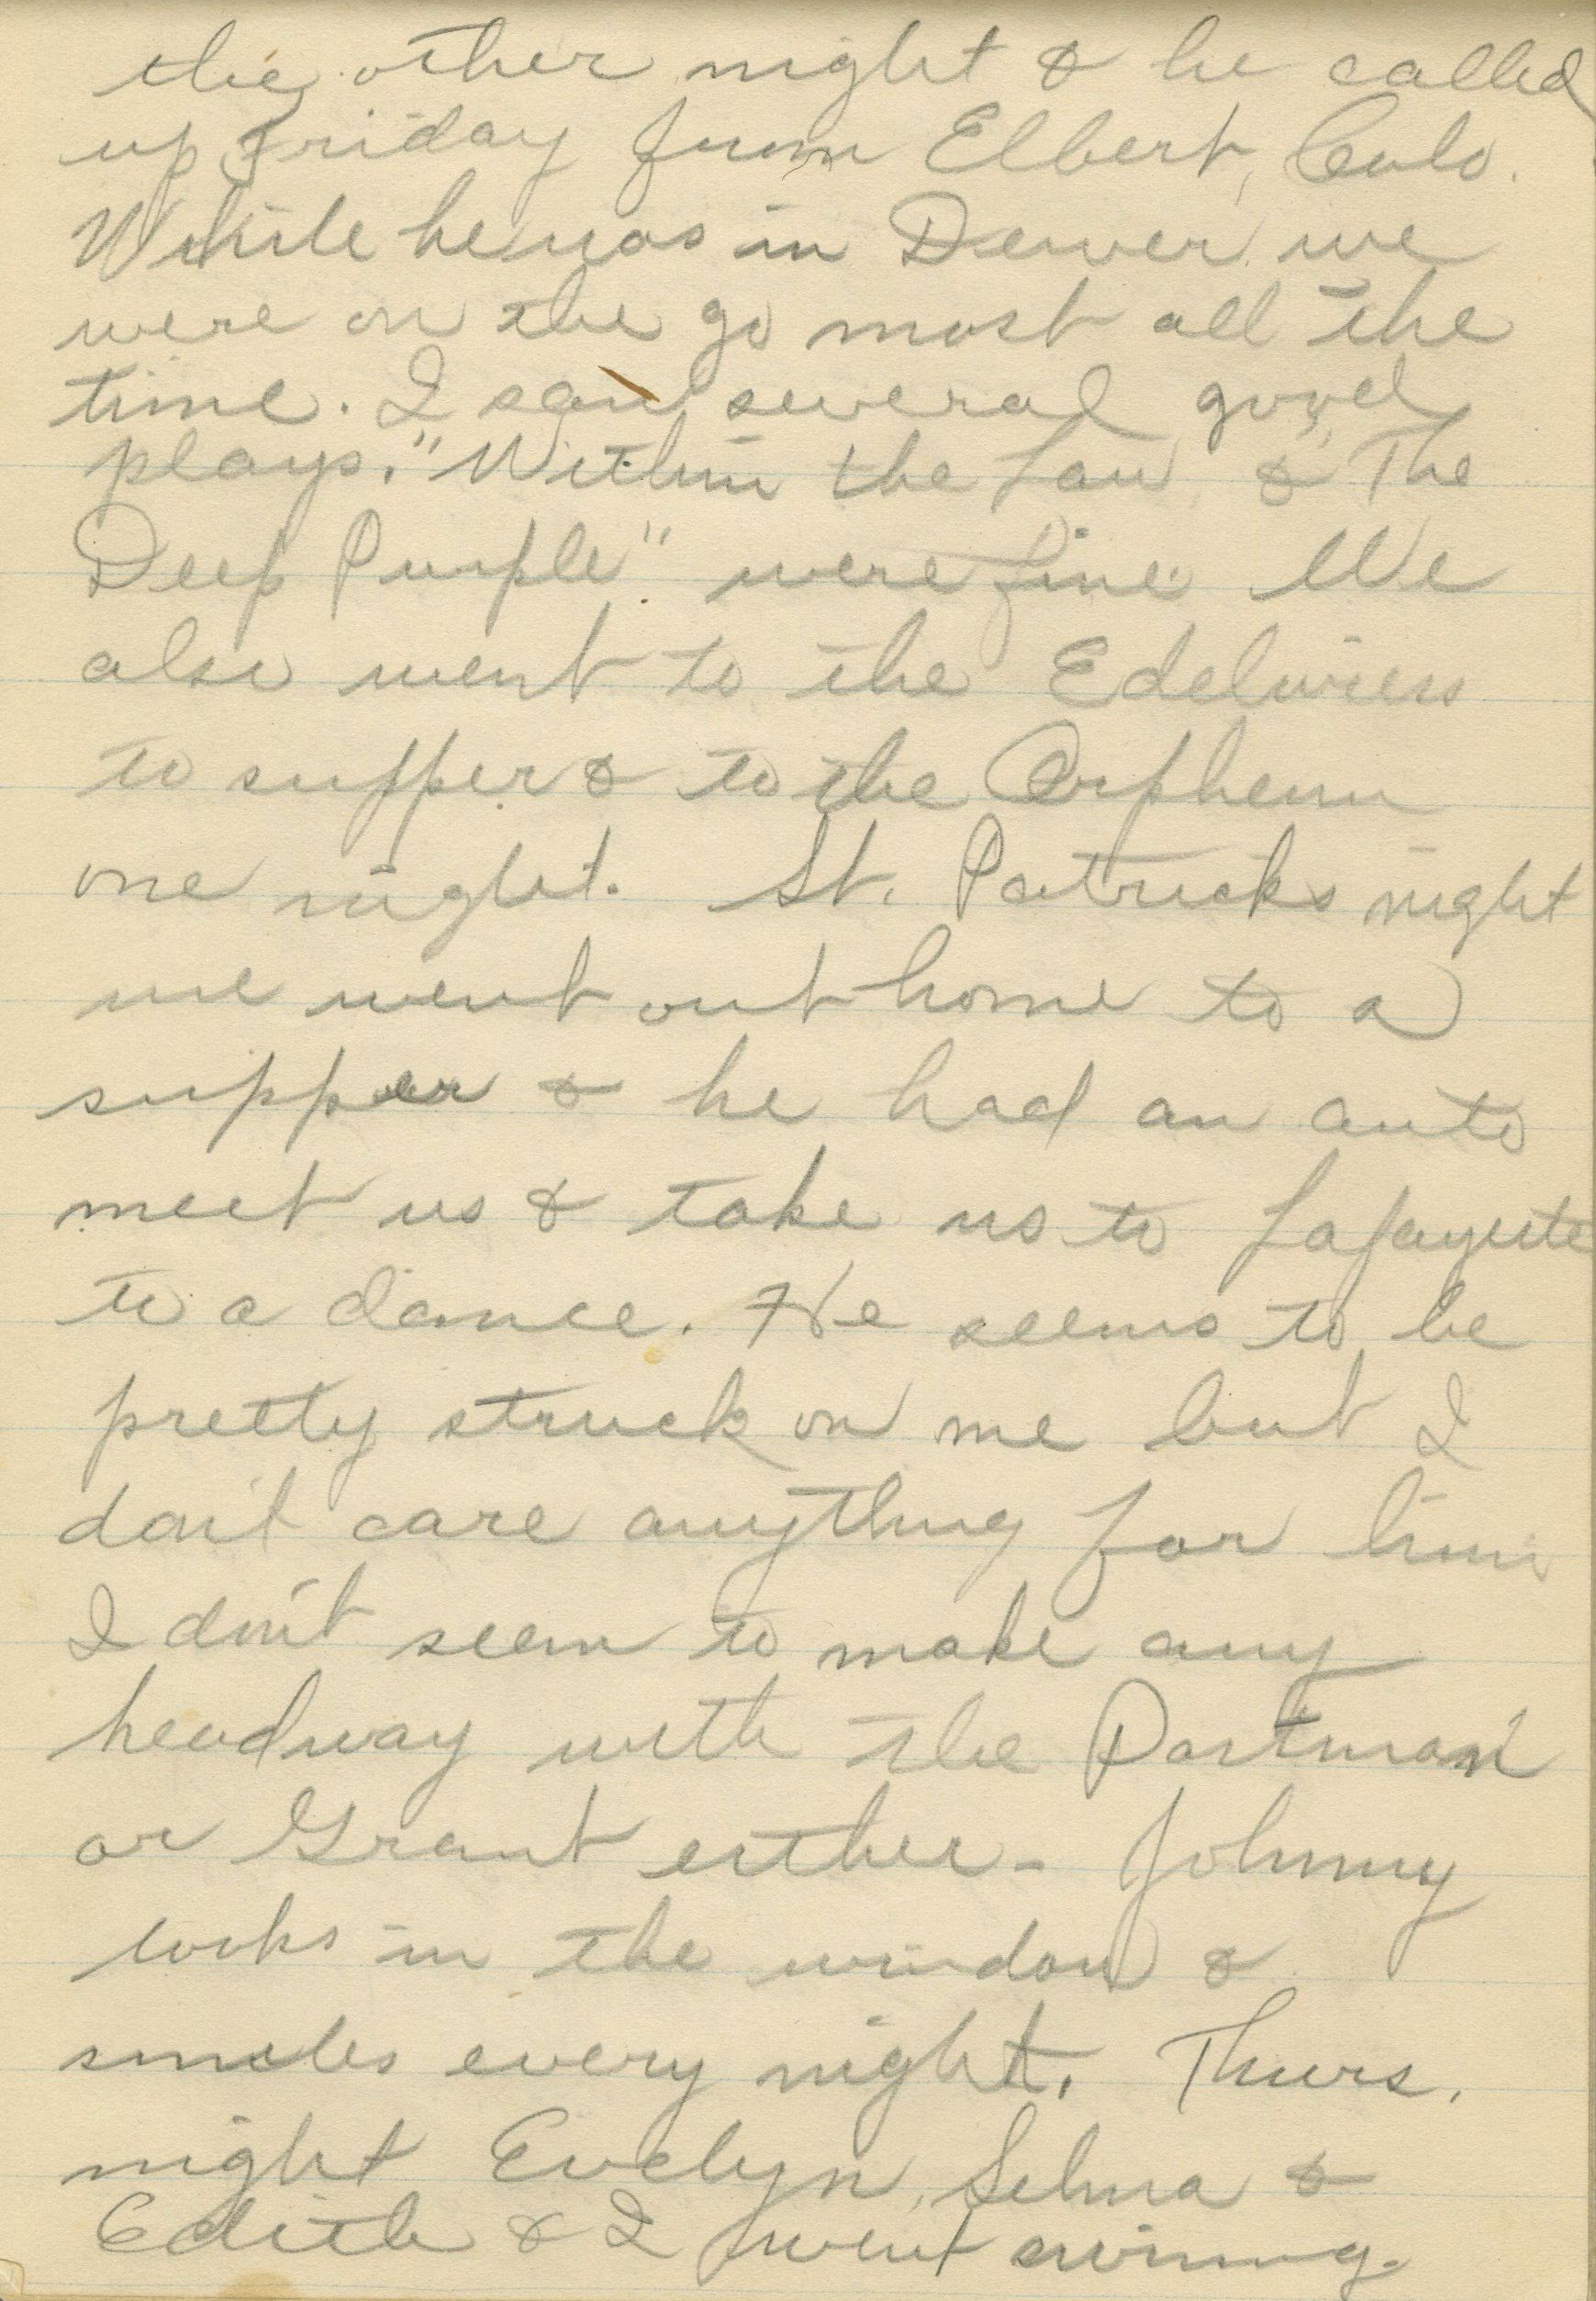 the other night & he called
up Friday from Elbert, Colo.
While he was in Denver we
were on the go most all the
time. I saw several good
plays. "Within the Law & "The
Deep Purple". were fine. We
also went to the Edelwiess
to supper & to the Orpheum
one night. St. Patricks night
we went out home to a
supper & he had an auto
meet us & take us to Lafayette
to a dance. He seems to be
pretty struck on me but I
don't care anything for him
I don't seem to make any
headway with the Postman
or Grant either - Johnny
looks in the window &
smiles every night. Thurs.
night Evelyn, Selma &
Edith & I went swimmg.